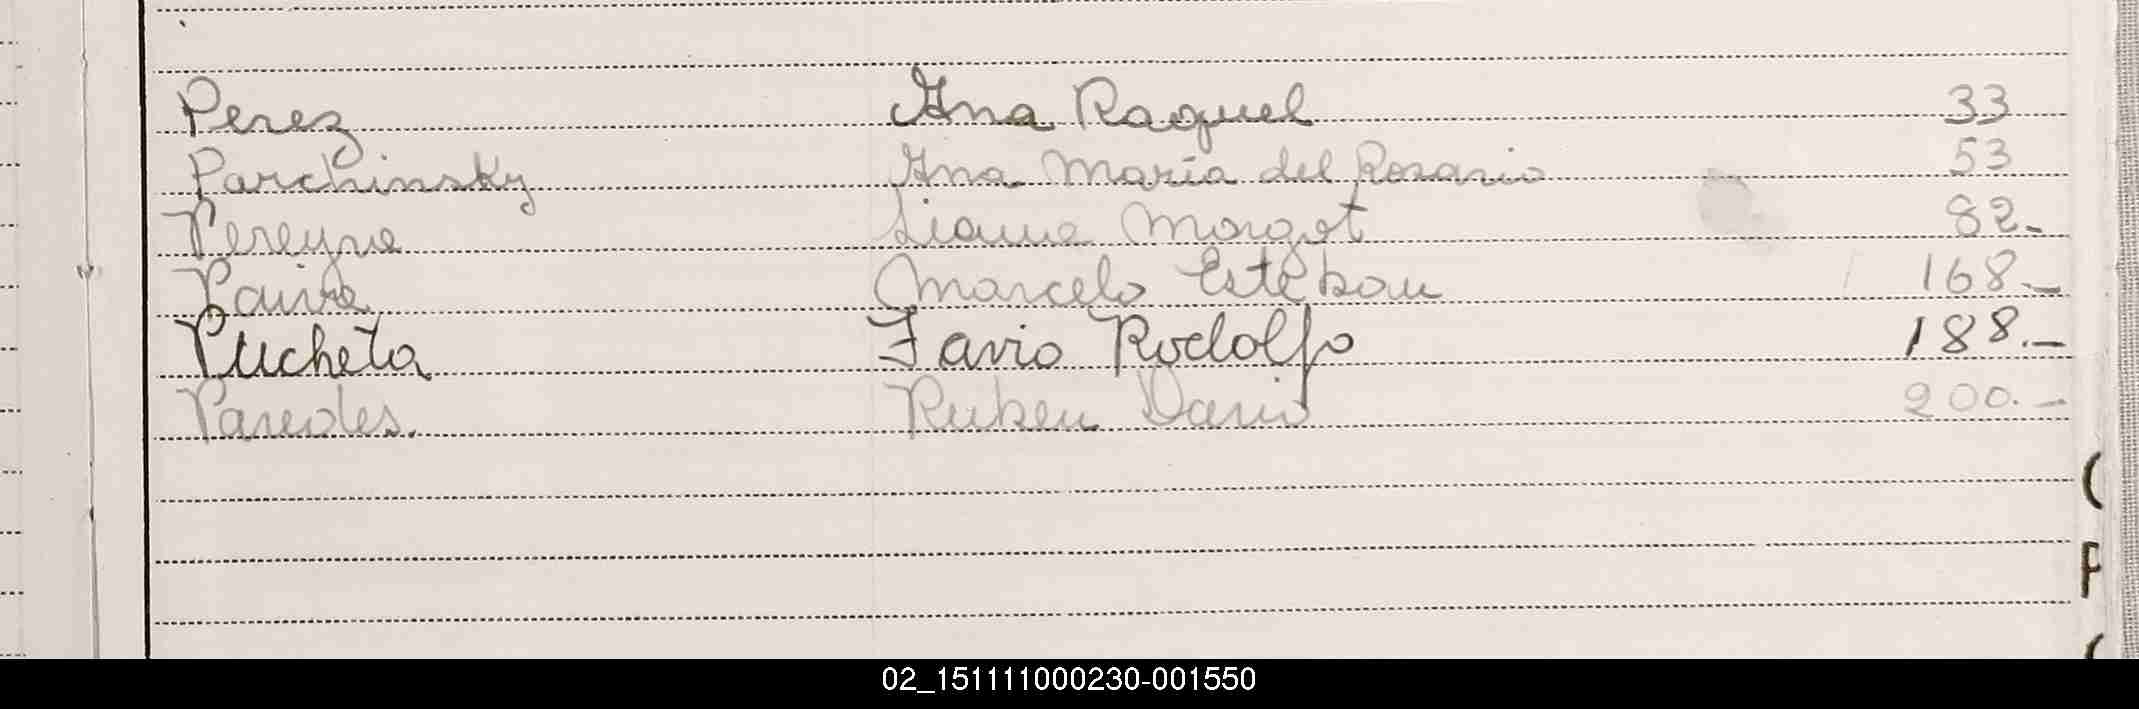 Perez Ana Raquel 33
Parchinsky Ana María del Rosario 53
Pereyra Liana Margot 82.-
Paiva Marcelo Esteban 168.-
Pucheta Favio Rodolfo 188.-
Paredes. Ruben Dario 200.-
(
P
02_151111000230-001550